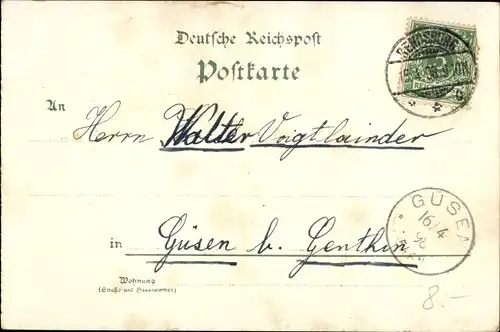 Deutsche Reichspost
Postkarte
An
Herrn Walter Voigtlaender
in
Güsen b. Genthin
Wohnung
(Straße und Hausnummer)
GÜSEN
16/4
98
8.-